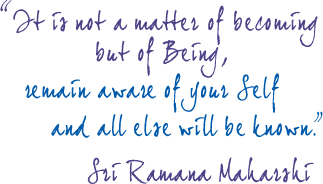 “It is not a matter of becoming
but of Being,
remain aware of your Self
and all else will be known.”
Sri Ramana Maharshi